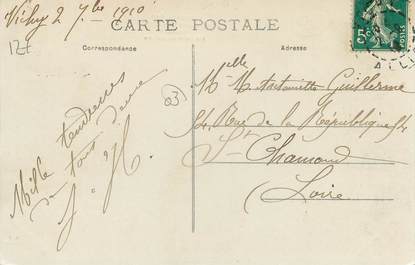 Vichy 2 7bre 1910
CARTE POSTALE
Correspondance
Adresse
Mille tendresses
de tous deux
Melle Antoinette Guillerme
54, Rue de la République 54
St Chamond
Loire
03